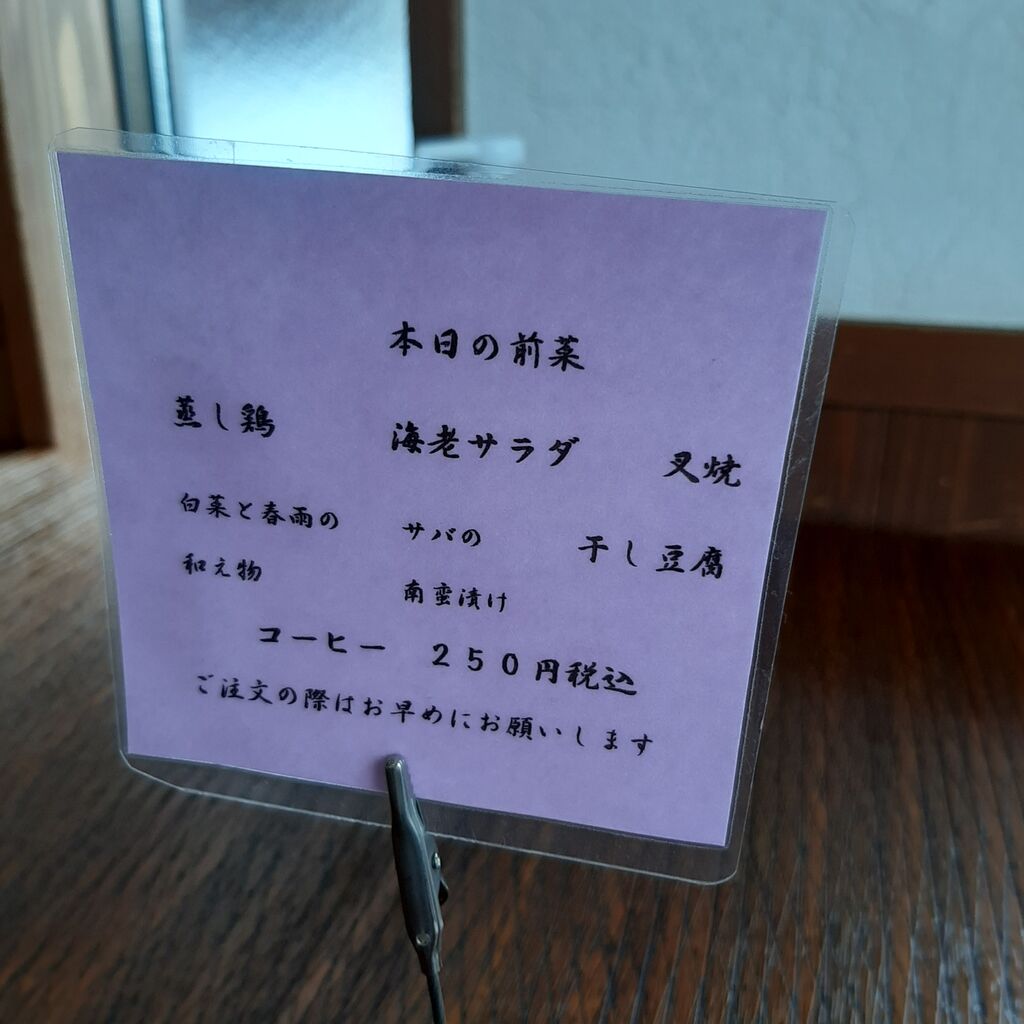 本日の前菜
蒸し鶏 海老サラダ 叉焼
白菜と春雨の サバの 干し豆腐
和え物 南蛮漬け
コーヒー 250円税込
ご注文の際はお早めにお願いします